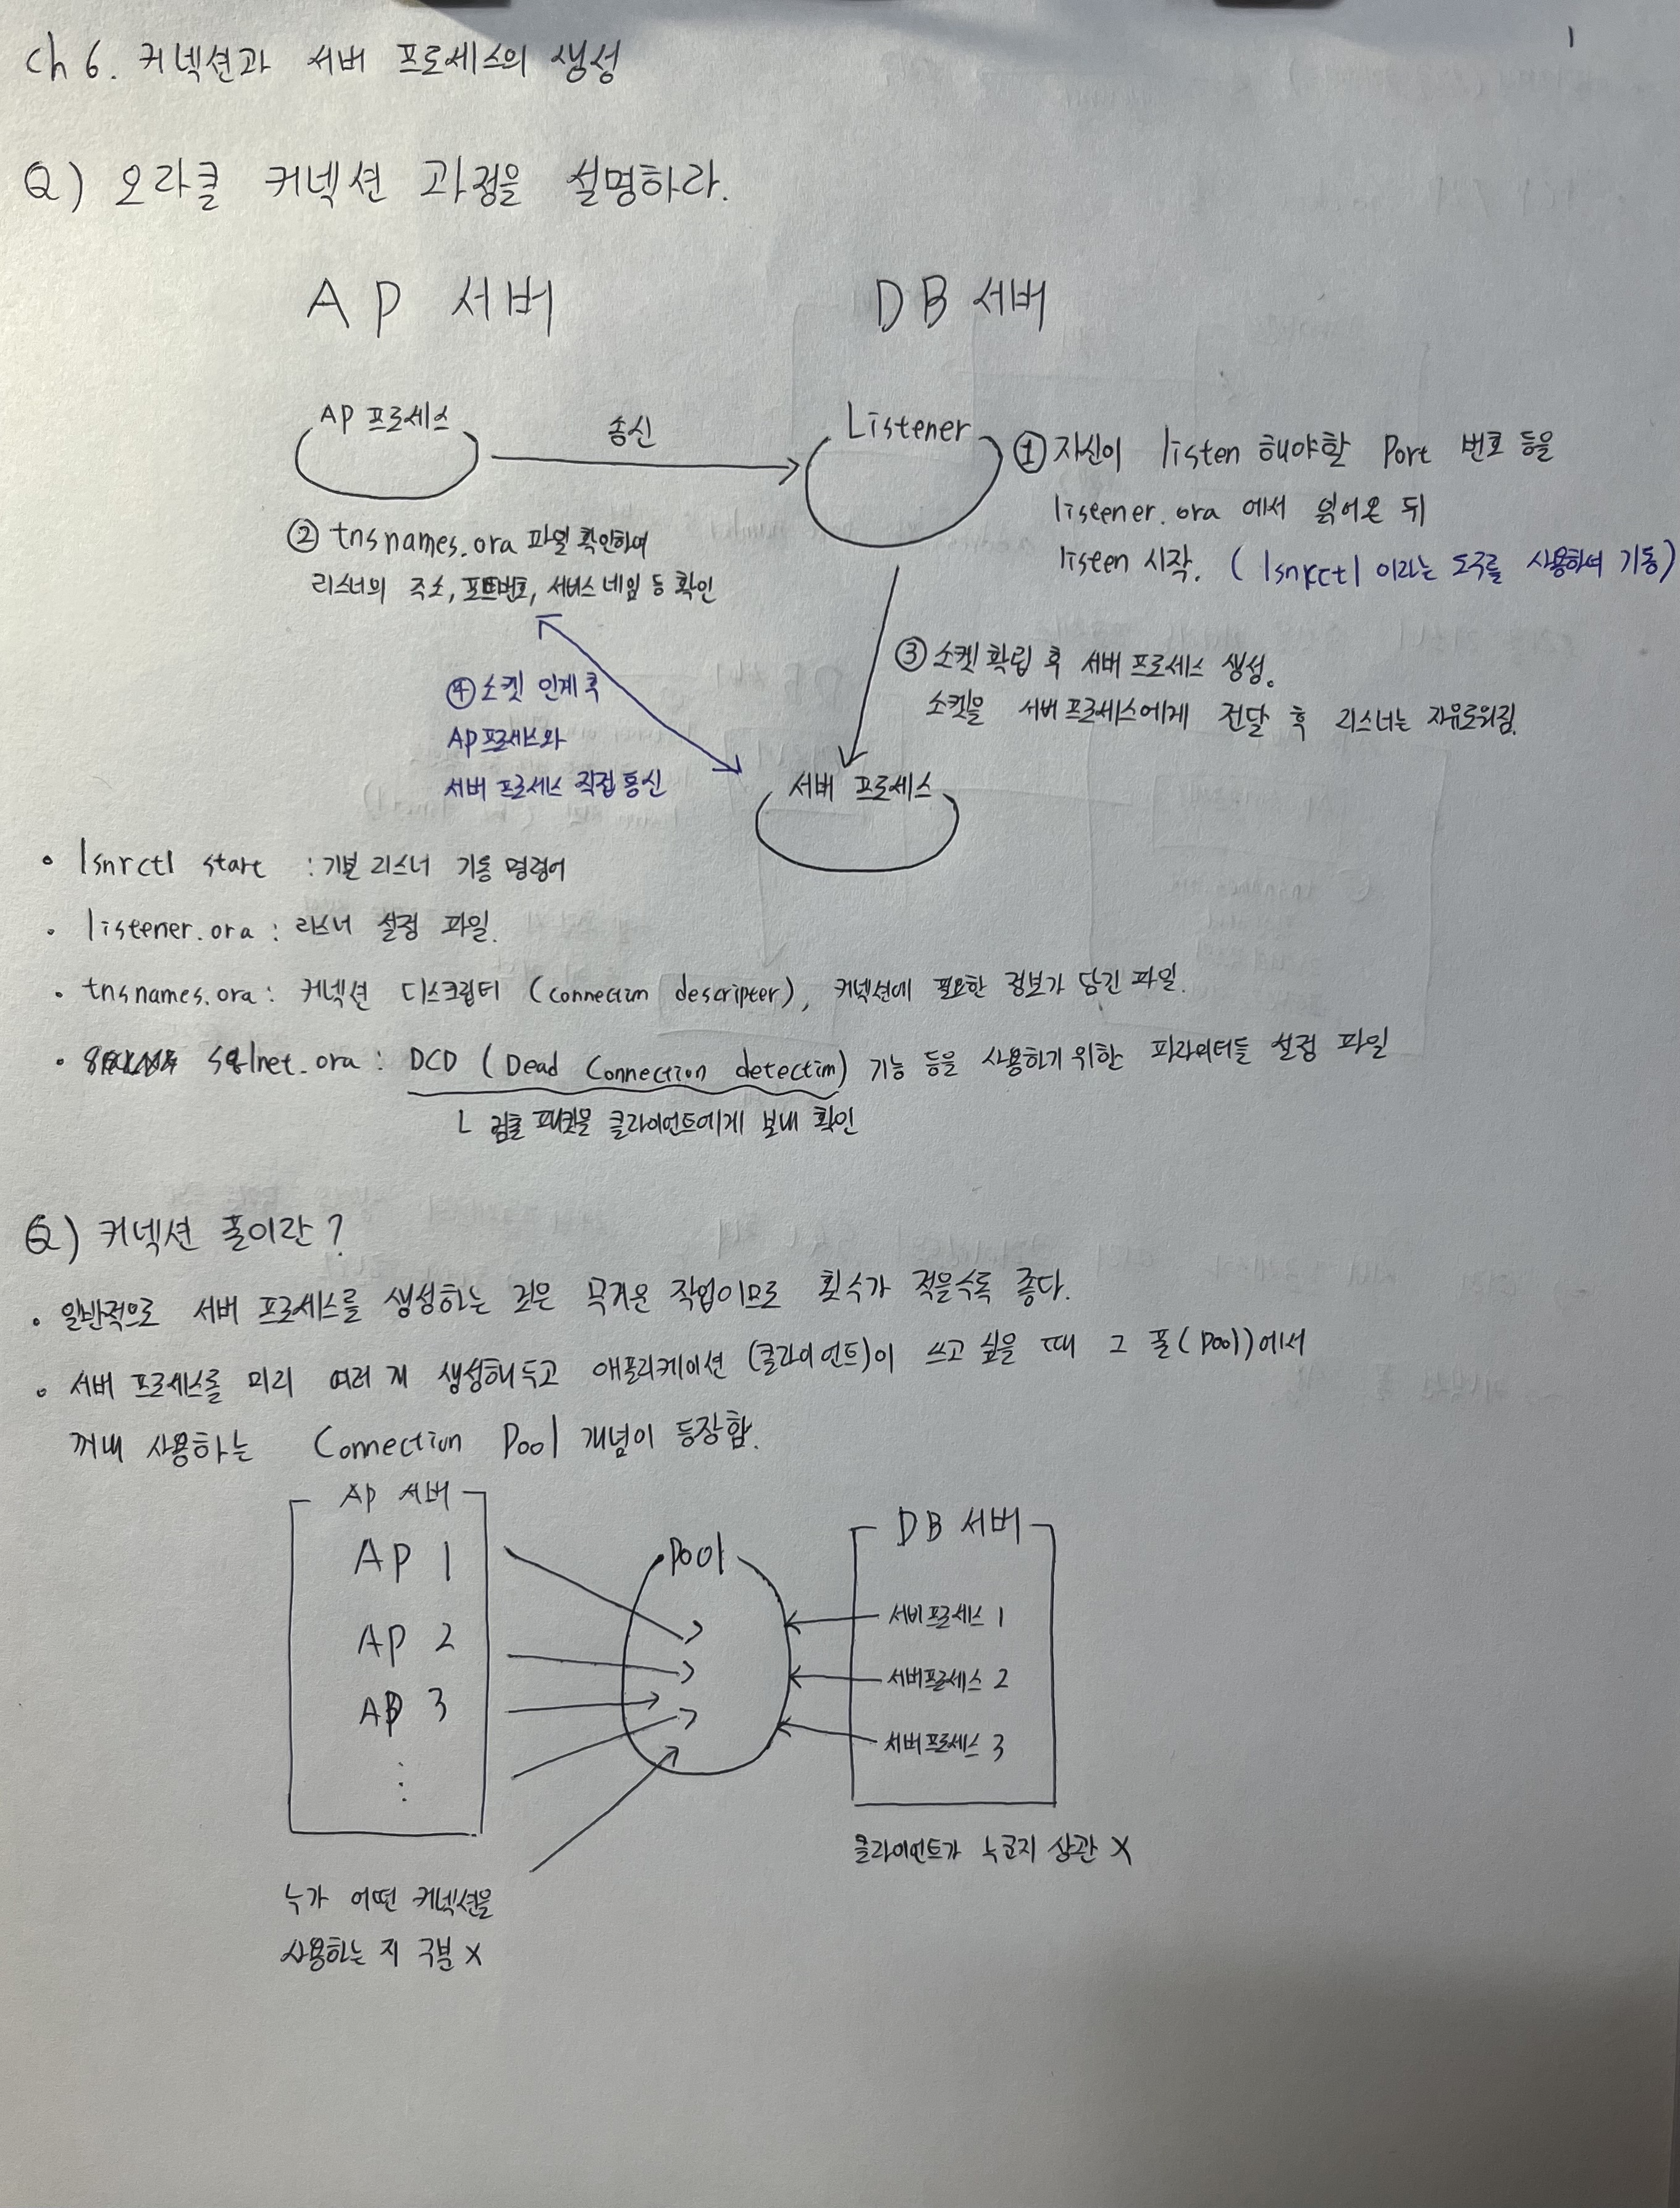 1
ch 6. 커넥션과 서버 프로세스의 생성
Q) 오라클 커넥션 과정을 설명하라.
AP 서버
DB 서버
AP 프로세스
송신
Listener
① 자신이 listen 해야할 Port 번호 등을
listener.ora 에서 읽어온 뒤
listen 시작. (lsnrctl 이라는 도구를 사용하여 기동)
② tnsnames.ora 파일 확인하여
리스너의 주소, 포트번호, 서비스 네임 등 확인
③ 소켓 확립 후 서버 프로세스 생성.
소켓을 서버 프로세스에게 전달 후 리스너는 자유로워짐.
④ 소켓 인계 후
AP 프로세스와
서버 프로세스 직접 통신
서버 프로세스
• lsnrctl start : 기본 리스너 기동 명령어
• listener.ora : 리스너 설정 파일.
• tnsnames.ora : 커넥션 디스크립터 (connection descripter), 커넥션에 필요한 정보가 담긴 파일.
• sqlnet.ora : DCD (Dead Connection detection) 기능 등을 사용하기 위한 파라미터들 설정 파일
ㄴ 검출 패킷을 클라이언트에게 보내 확인
Q) 커넥션 풀이란?
• 일반적으로 서버 프로세스를 생성하는 것은 무거운 작업이므로 횟수가 적을수록 좋다.
• 서버 프로세스를 미리 여러 개 생성해두고 애플리케이션 (클라이언트)이 쓰고 싶을 때 그 풀(pool)에서
꺼내 사용하는 Connection Pool 개념이 등장함.
AP 서버
AP 1
AP 2
AP 3
⋮
Pool
DB 서버
서버프로세스 1
서버프로세스 2
서버프로세스 3
클라이언트가 누군지 상관 X
누가 어떤 커넥션을
사용하는 지 구분 X